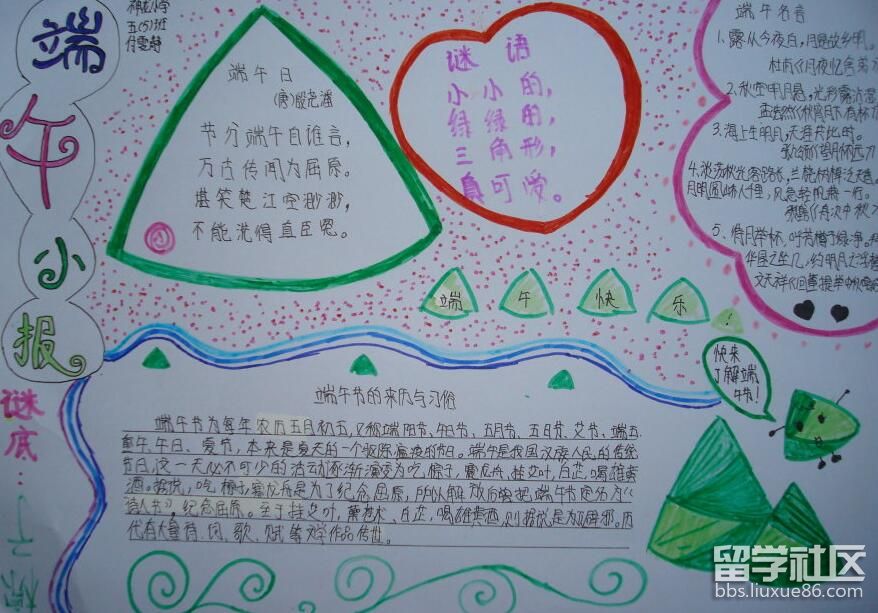 端午小报
五(5)班
端午日
(唐)殷尧藩
节分端午自谁言,
万古传闻为屈原。
堪笑楚江空渺渺,
不能洗得直臣冤。
谜语
小小的,
绿绿的,
三角形,
真可爱。
端午名言
1、露从今夜白,月是故乡明。
杜甫《月夜忆舍弟
2、秋空明月悬,光彩露沾湿
孟浩然《秋宵月下有怀
3、海上生明月,天涯共此时。
张九龄《望月怀远
风急轻帆
5、
文天祥《回董提举中秋
端午快乐
快来
了解端
午节!
端午节的来历与习俗
端午节为每年农历五月初五,又称端阳节、午日节、五月节、五日节、艾节、端五、
重午、午日、夏节,本来是夏天的一个驱除瘟疫的节日。端午是我国汉族人民的传统
节日,这一天必不可少的活动逐渐演变为吃粽子,赛龙舟,挂艾叶,白芷,喝雄黄
酒。据说,吃粽子,赛龙舟是为了纪念屈原,所以解放后曾把端午节定名为“
诗人节”,纪念屈原。至于挂艾叶,薰苍术、白芷,喝雄黄酒,则据说是为了辟邪。历
代有大量诗、词、歌、赋等文学作品传世。
谜底…粽子
留学社区
bbs.liuxue86.com